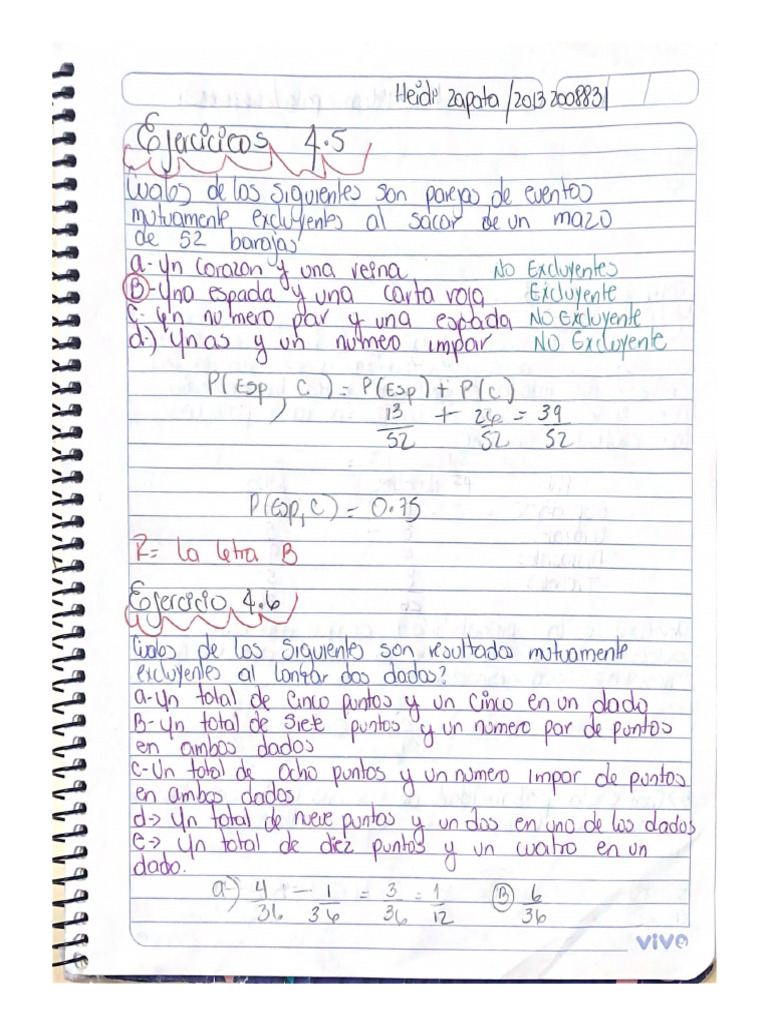 Heidi Zapata / 20132008831
Ejercicicos 4.5
Cuales de los siguientes son parejas de eventos
mutuamente excluyentes al sacar de un mazo
de 52 barajas
a- Un corazon y una reina No Excluyentes
B- Una espada y una carta roja Excluyente
c- Un numero par y una espada No Excluyente
d-) Un as y un numero impar No Excluyente
P(Esp, C) = P(Esp) + P(C)
13/52 + 26/52 = 39/52
P(Esp, C) = 0.75
R= La letra B
Ejercicio 4.6
Cuales de los siguientes son resultados mutuamente
excluyentes al lanzar dos dados?
a- Un total de cinco puntos y un cinco en un dado
B- Un total de siete puntos y un numero par de puntos
en ambos dados
c- Un total de ocho puntos y un numero impar de puntos
en ambos dados
d-> Un total de nueve puntos y un dos en uno de los dados
e-> Un total de diez puntos y un cuatro en un
dado.
a-) 4/36 - 1/36 = 3/36 = 1/12 B 6/36
vive